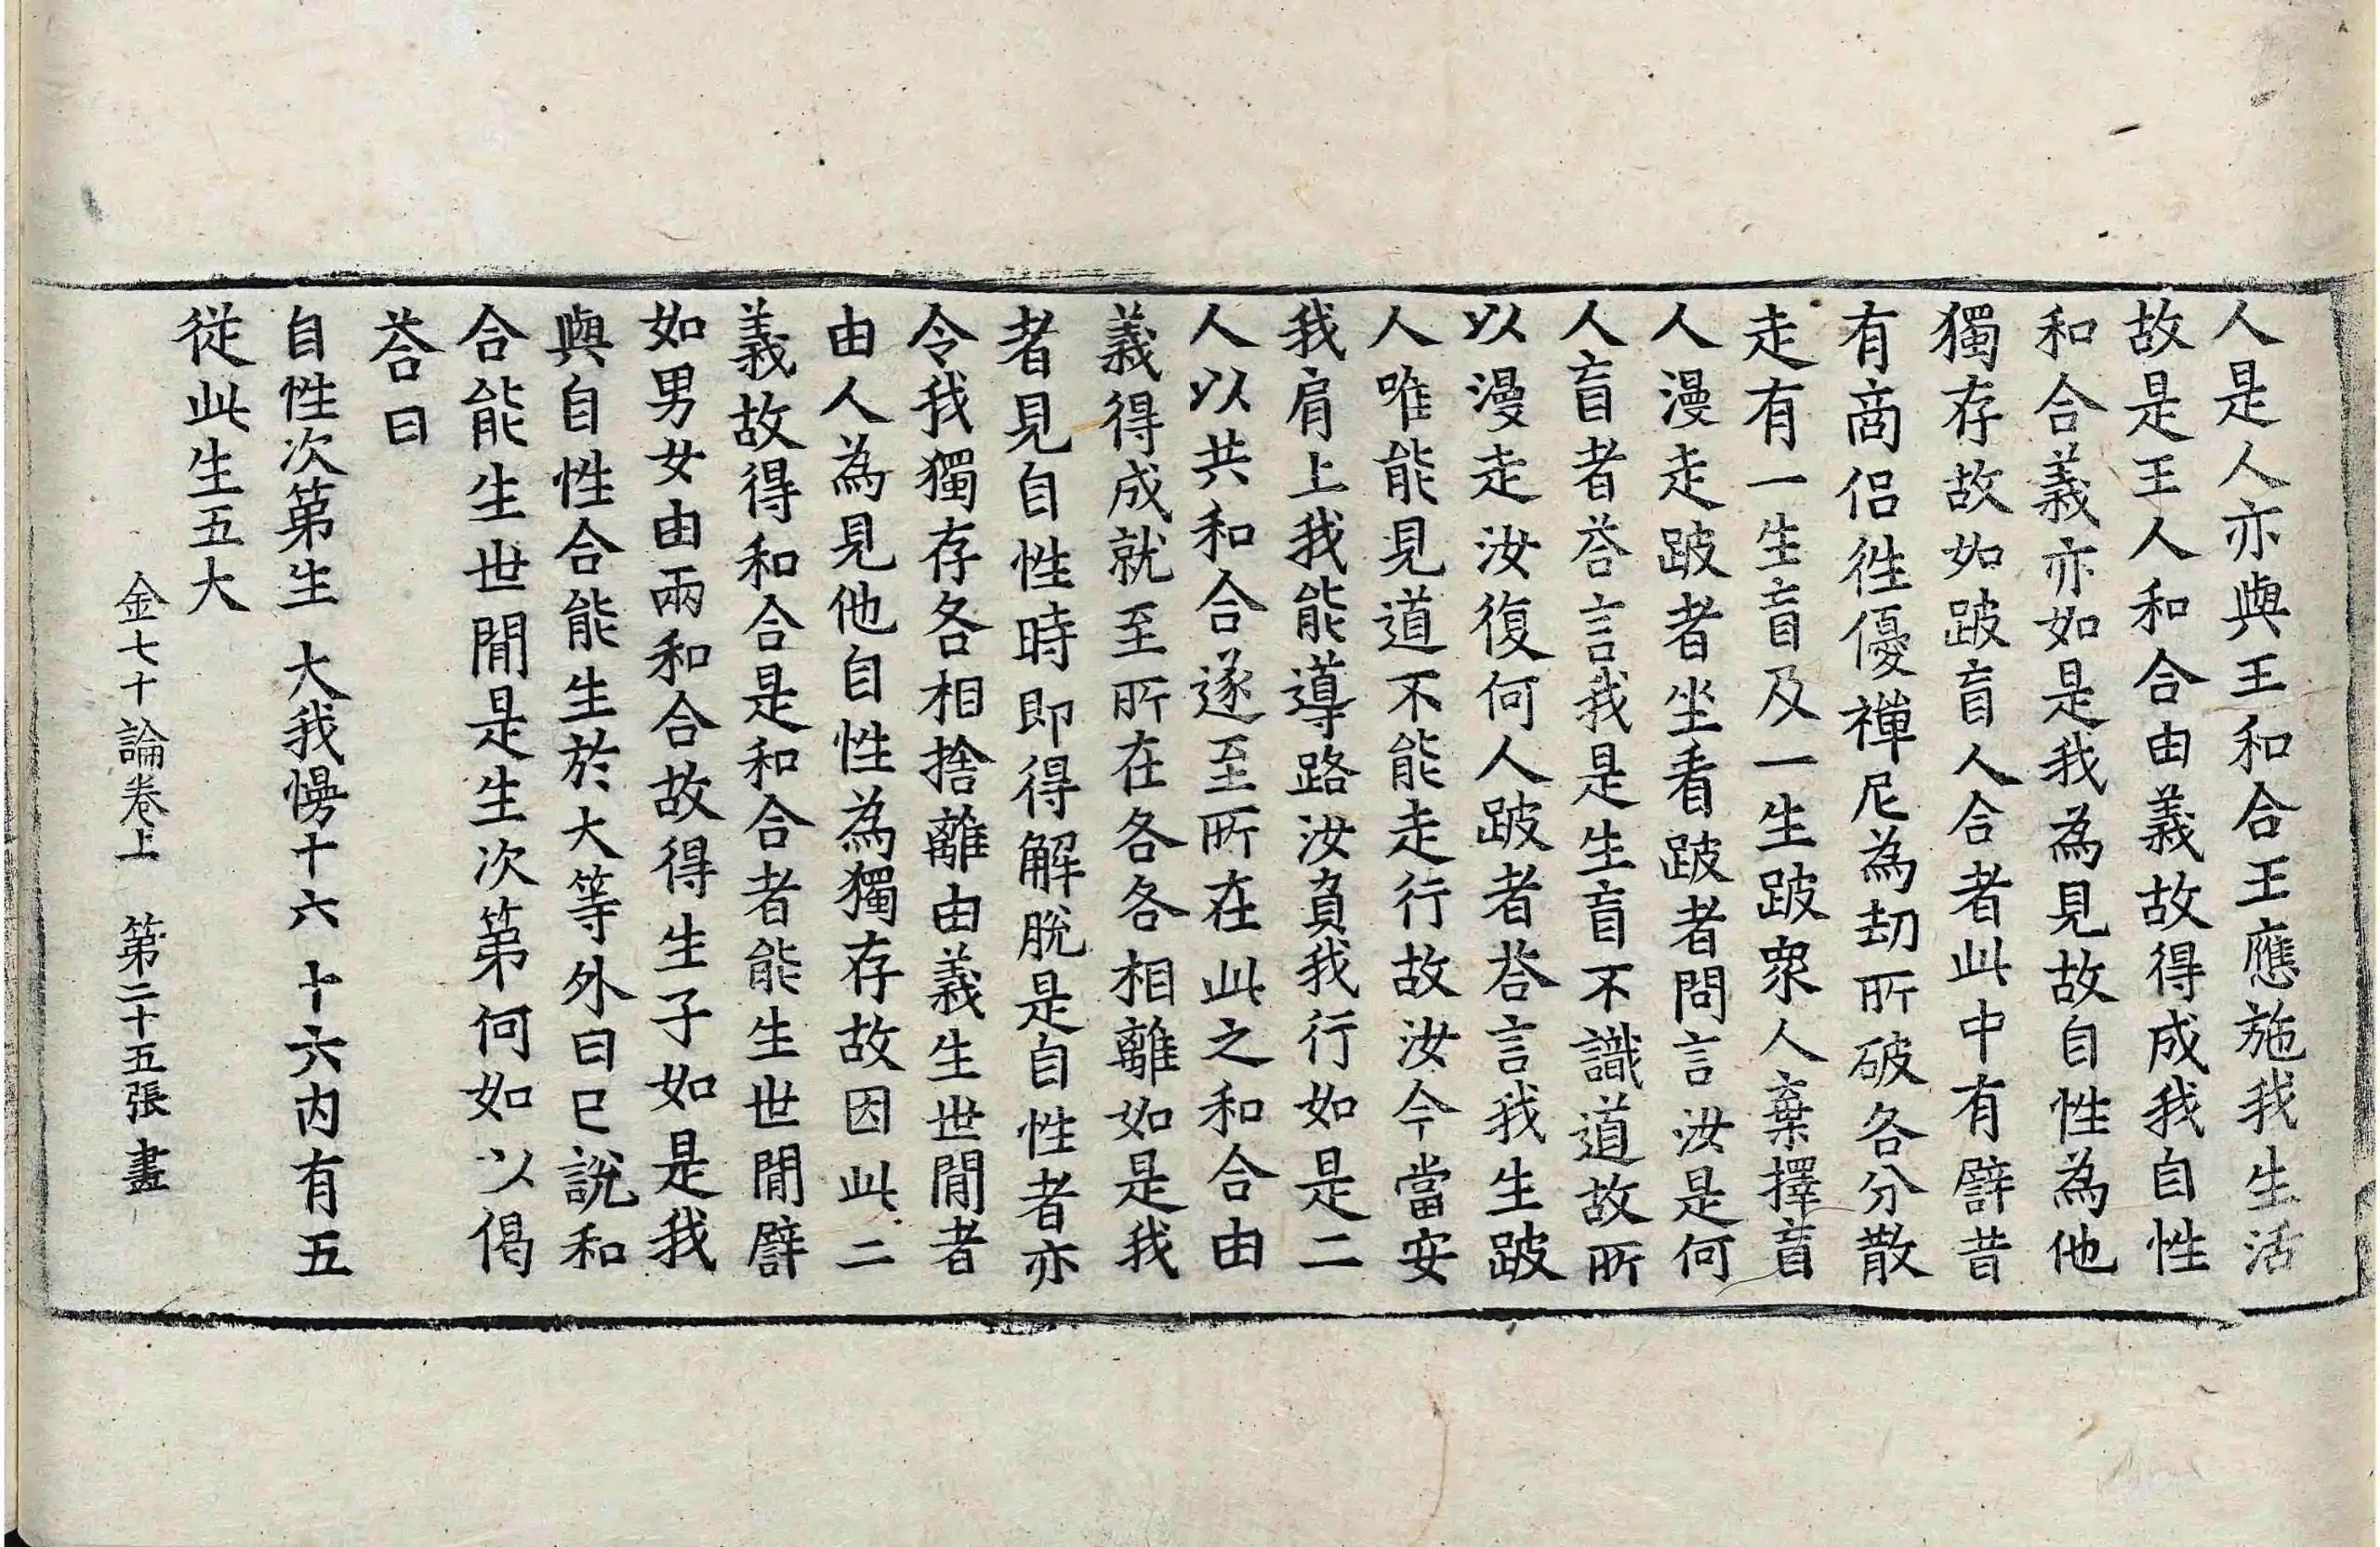 人是人亦與王和合王應施我生活
故是王人和合由義故得成我自性
和合義亦如是我為見故自性為他
獨存故如跛盲人合者此中有譬昔
有商侶徃優禪尼為刼所破各分散
走有一生盲及一生跛衆人棄擇盲
人漫走跛者坐看跛者問言汝是何
人盲者荅言我是生盲不識道故所
以漫走汝復何人跛者荅言我生跛
人唯能見道不能走行故汝今當安
我肩上我能導路汝負我行如是二
人以共和合遂至所在此之和合由
義得成就至所在各各相離如是我
者見自性時即得解脫是自性者亦
令我獨存各相捨離由義生世間者
由人為見他自性為獨存故因此二
義故得和合是和合者能生世間譬
如男女由兩和合故得生子如是我
與自性合能生於大等外曰已說和
合能生世間是生次第何如以偈
荅曰
自性次第生 大我慢十六 十六内有五
從此生五大
金七十論卷上 第二十五張 畫